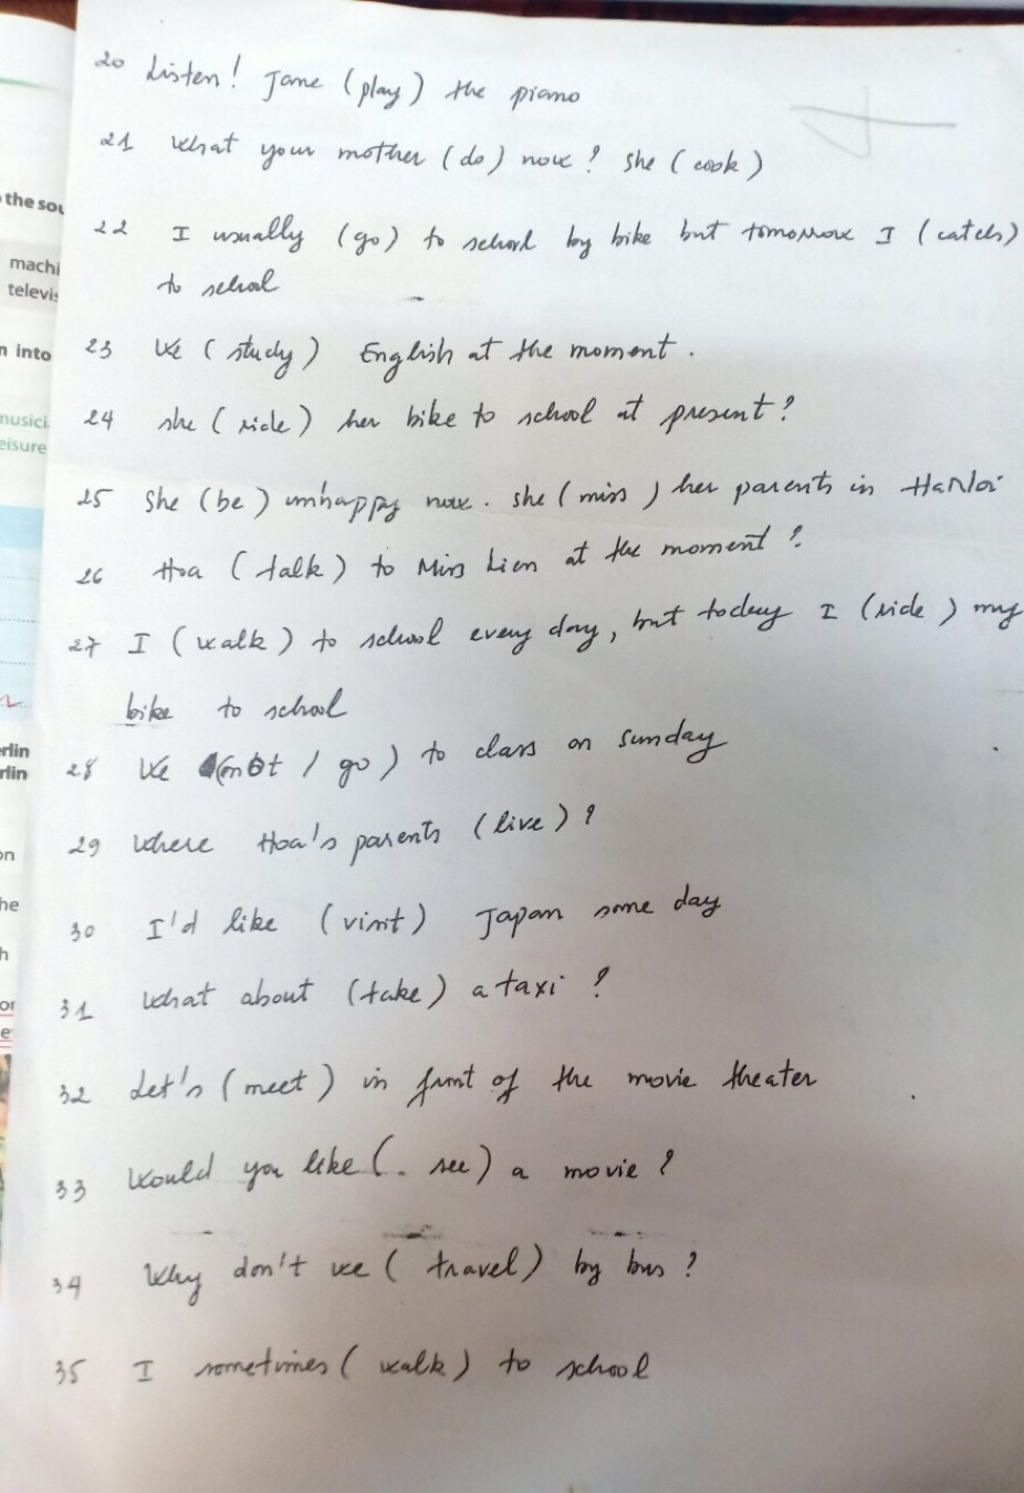 the sou
machi
televis
n into
musici
eisure
erlin
rlin
on
he
h
or
e
20 Listen! Jane (play) the piano
21 What your mother (do) now? She (cook)
22 I usually (go) to school by bike but tomorrow I (catch)
to school
23 We (study) English at the moment.
24 she (ride) her bike to school at present?
25 She (be) unhappy now. she (miss) her parents in HaNoi
26 Hoa (talk) to Miss Lien at the moment?
27 I (walk) to school every day, but today I (ride) my
bike to school
28 We (not / go) to class on Sunday
29 Where Hoa's parents (live)?
30 I'd like (visit) Japan some day
31 What about (take) a taxi?
32 Let's (meet) in front of the movie theater
33 Would you like (. see) a movie?
34 Why don't we (travel) by bus?
35 I sometimes (walk) to school